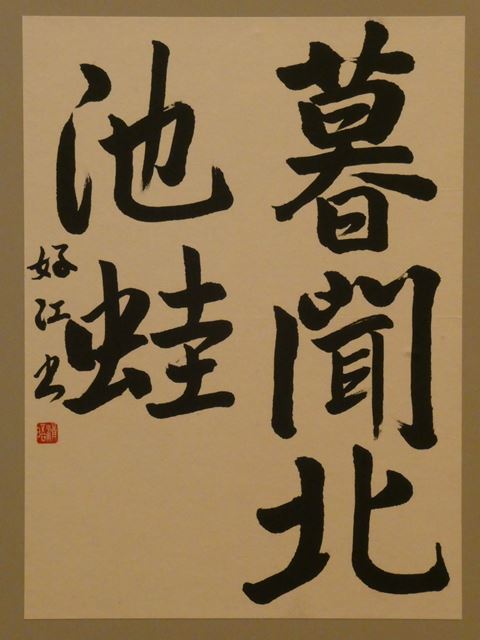 暮聞北
池蛙
好江书